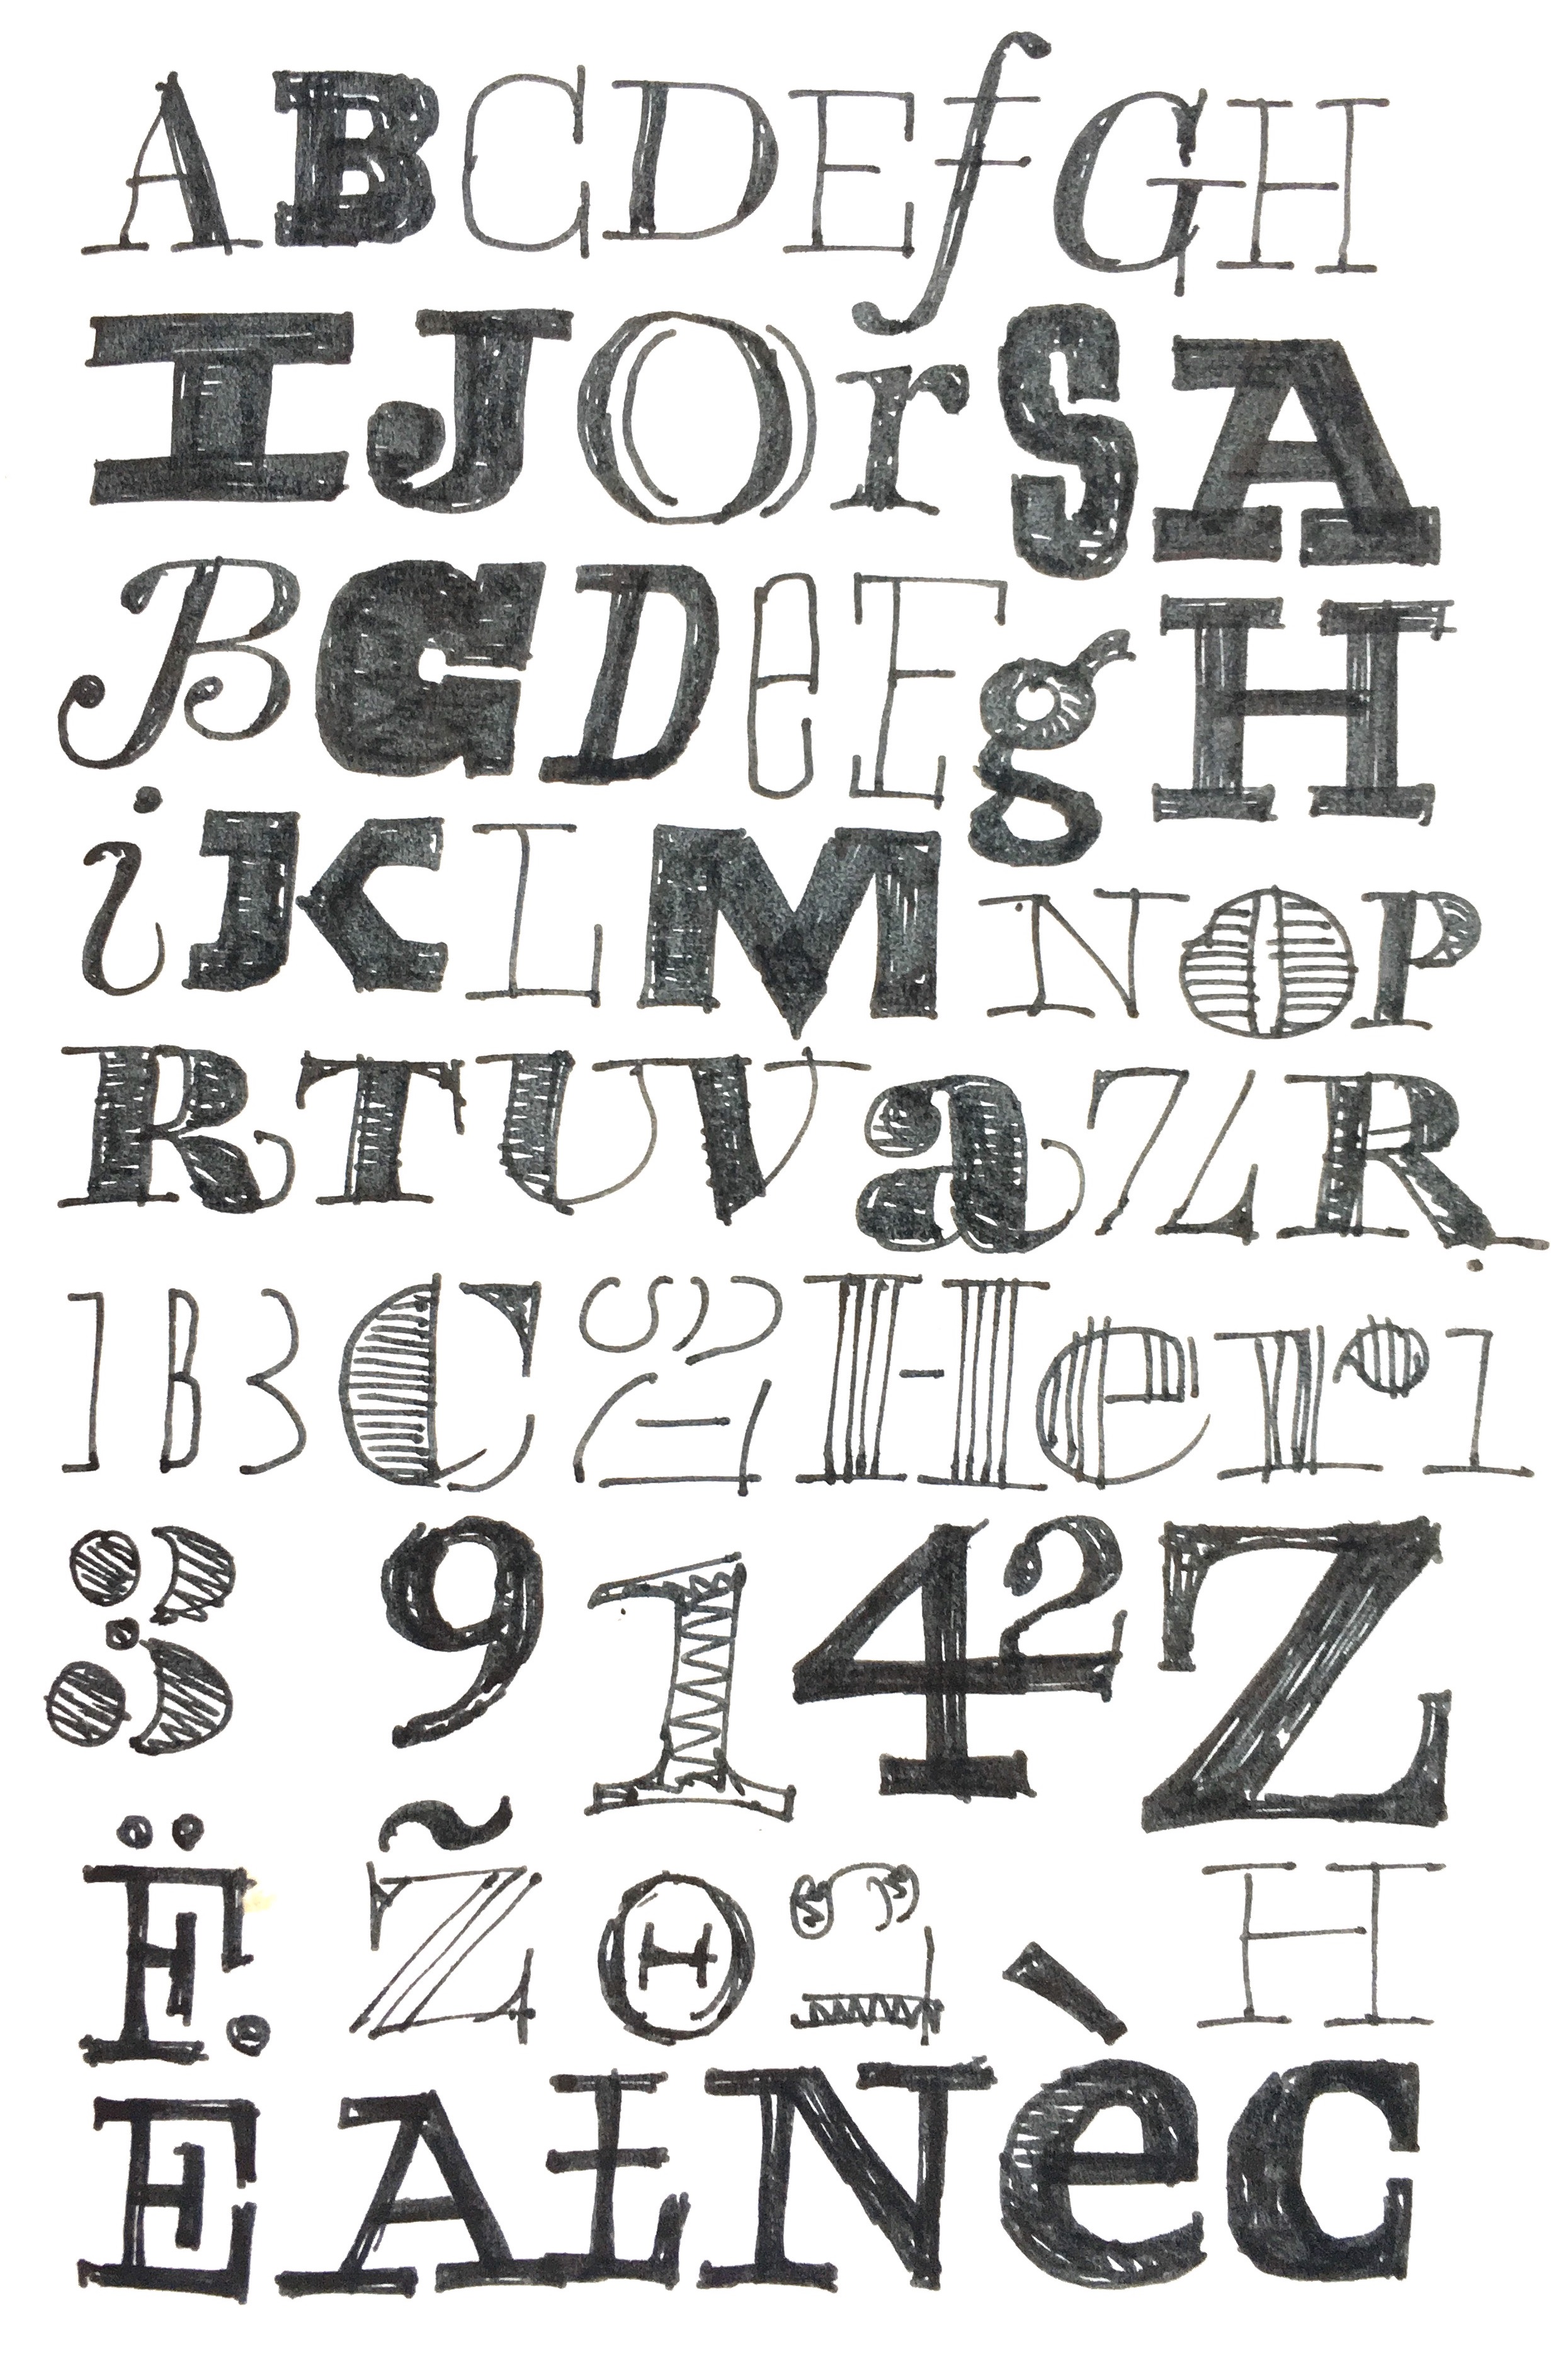 ABCDEfGH
IJOrSA
BGDeEgH
iKLMNOP
RTUVaZR
1B3C2Her1
89142Z
Ë.Z̃Θ2H
EAŁNèC